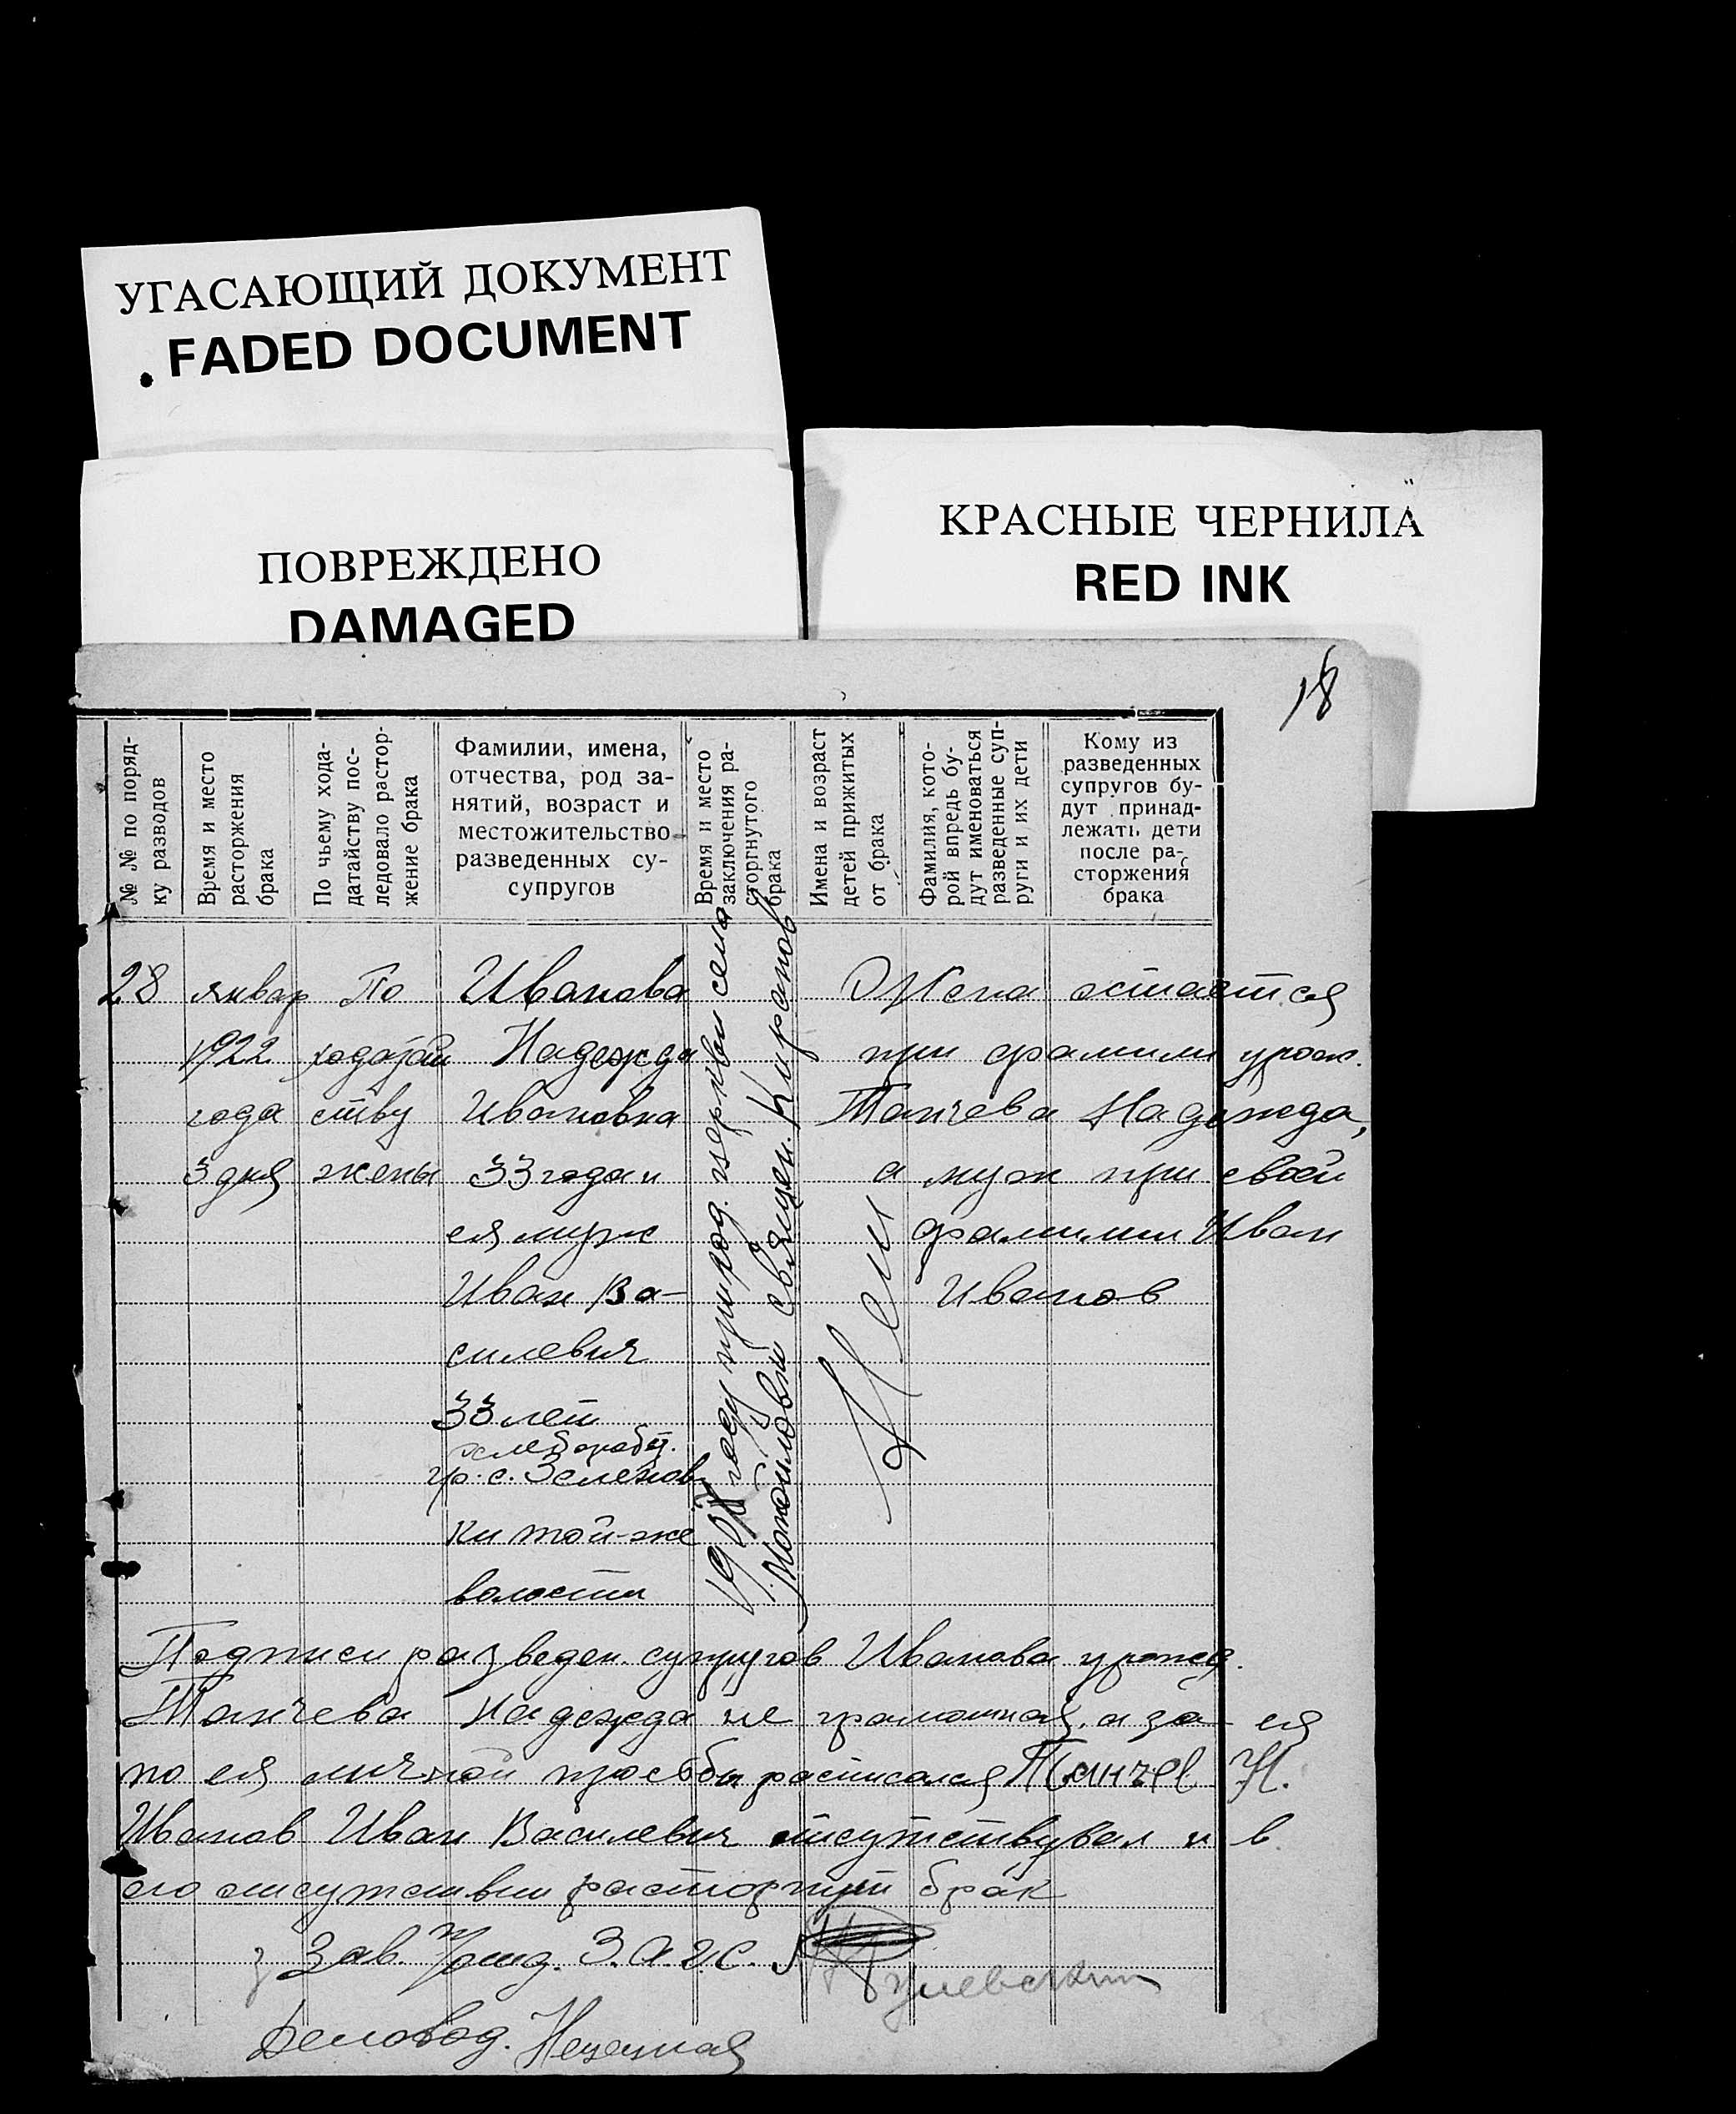 УГАСАЮЩИЙ ДОКУМЕНТ
FADED DOCUMENT
ПОВРЕЖДЕНО
DAMAGED
КРАСНЫЕ ЧЕРНИЛА
RED INK
18
№ № по поряд-
ку разводов
Время и место
расторжения
брака
По чьему хода-
датайству пос-
ледовало растор-
жение брака
Фамилии, имена,
отчества, род за-
нятий, возраст и
местожительство
разведенных су-
супругов
Время и место
заключения ра-
сторгнутого
брака
Имена и возраст
детей прижитых
от брака
Фамилия, кото-
рой впредь бу-
дут именоваться
разведенные суп-
руги и их дети
Кому из
разведенных
супругов бу-
дут принад-
лежать дети
после ра-
сторжения
брака
28
январ
1922
года
3 дня
По
ходатай
ству
жены
Иванова
Надежда
Ивановна
33 года и
ея муж
Иван Ва-
силевич
33 лет
хлебораб.
гр. с. Зеленов
ки той-же
волости
году приход. церкви села
священ. Киранов
Нет
Жена остается
при фамилии урож.
Танчева Надежда,
а муж при своей
фамилии Иван
Иванов
Подписи разведен. супругов Иванова урожд.
Танчева Надежда не грамотная, а за ея
по ея личной просьбы расписался Танчев Н.
Иванов Иван Василевич отсутствувал и в
его отсутствии расторгнут брак
Зав. З.А.Г.С.
Деловод.